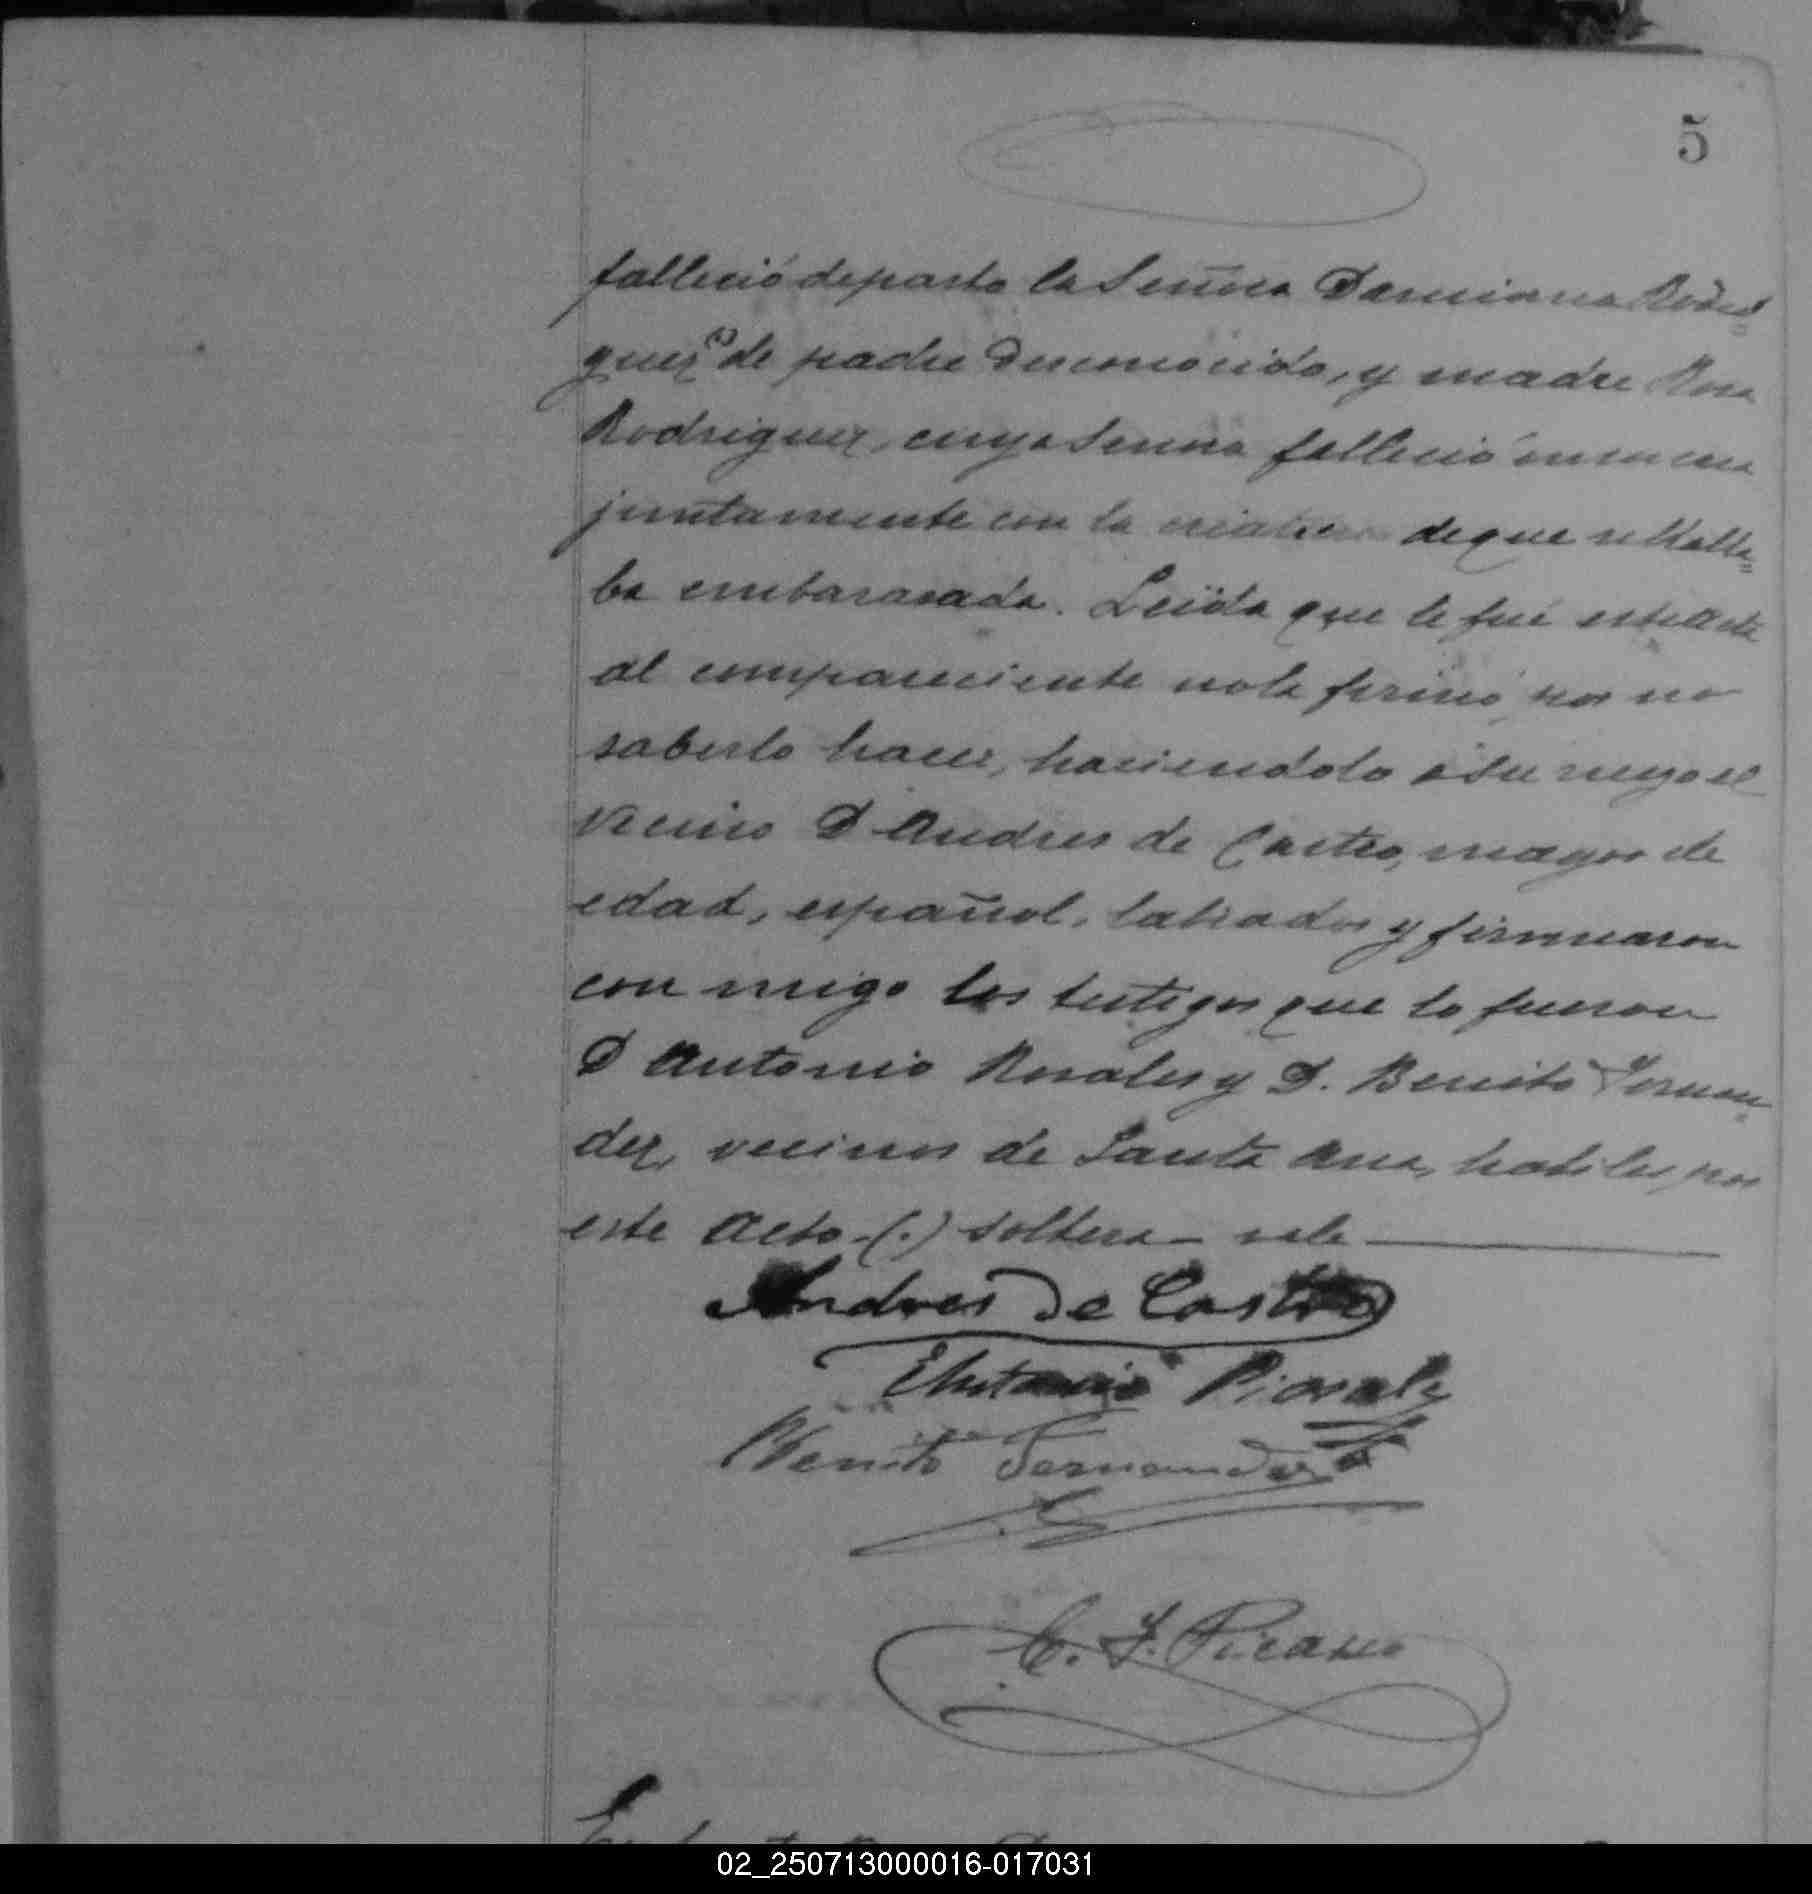 5
falleció de parto la Señora Damiana Rodri=
guez(.) de padre Desconocido, y madre Rosa
Rodriguez, cuya Señora falleció en su casa
juntamente con la criatura de que se Halla=
ba embarasada. Leida que le fué esta Acta
al compareciente no la firmó por no
saberlo hacer, haciendolo a su ruego el
vecino D Andres de Castro, mayor de
edad, español, labrador y firmaron
con migo los testigos que lo fueron
D Antonio Rosales y D. Benito Fernan=
dez, vecinos de Santa Ana, habiles por
este Acto-(.) Soltera - vale
Andres de Castro
Antonio Rosales
Benito Fernandez
C. F. Picasso
02_250713000016-017031